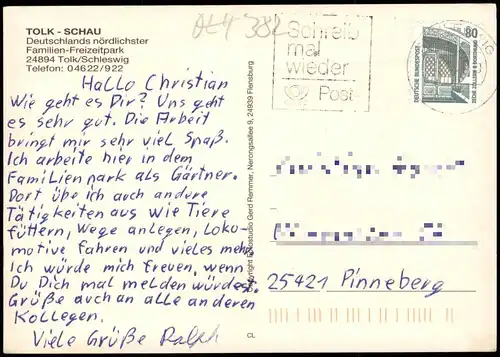 TOLK - SCHAU
Deutschlands nördlichster
Familien-Freizeitpark
24894 Tolk/Schleswig
Telefon: 04622/922
Hallo Christian
Wie geht es Dir? Uns geht
es sehr gut. Die Arbeit
bringt mir sehr viel Spaß.
Ich arbeite hier in dem
Familienpark als Gärtner.
Dort übe ich auch andere
Tätigkeiten aus wie Tiere
füttern, Wege anlegen, Loko-
motive fahren und vieles mehr
Ich würde mich freuen, wenn
Du Dich mal melden würdest.
Grüße auch an alle anderen
Kollegen.
Viele Grüße Ralph
Copyright Fotostudio Gerd Remmer, Nerongsallee 9, 24939 Flensburg
CL
382
Schreib
mal
wieder
Post
80
DEUTSCHE BUNDESPOST
25421 Pinneberg